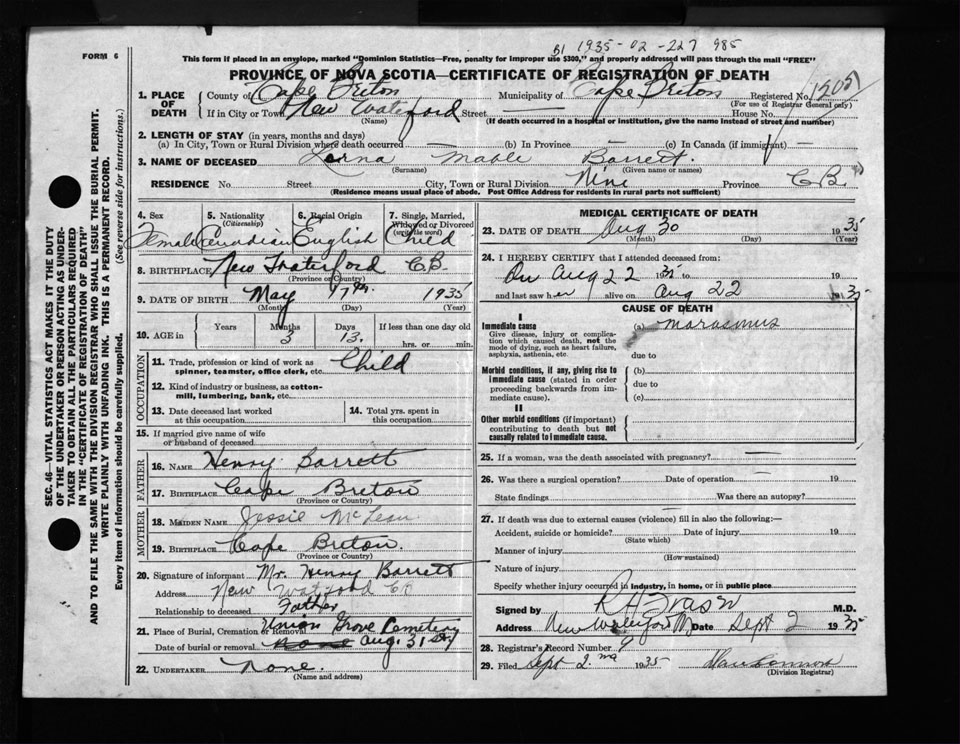 B1 1935-02-227 985
FORM 6
This form if placed in an envelope, marked "Dominion Statistics—Free, penalty for improper use $300," and properly addressed will pass through the mail "FREE"
PROVINCE OF NOVA SCOTIA—CERTIFICATE OF REGISTRATION OF DEATH
1. PLACE OF DEATH
County of Cape Breton Municipality of Cape Breton Registered No.
(For use of Registrar General only)
If in City or Town New Waterford Street House No.
(Name) (If death occurred in a hospital or institution, give the name instead of street and number)
2. LENGTH OF STAY (in years, months and days)
(a) In City, Town or Rural Division where death occurred (b) In Province — (c) In Canada (if immigrant) —
3. NAME OF DECEASED Lorna Mable Barrett.
(Surname) (Given name or names)
RESIDENCE No. Street City, Town or Rural Division Nine Province C.B.
(Residence means usual place of abode. Post Office Address for residents in rural parts not sufficient)
4. Sex 5. Nationality (Citizenship) 6. Racial Origin 7. Single, Married, Widowed or Divorced (write the word)
Female Canadian English Child
8. BIRTHPLACE New Waterford C.B.
(Province or Country)
9. DATE OF BIRTH May 17th 1935
(Month) (Day) (Year)
10. AGE in Years Months Days If less than one day old
3 13. hrs. or min.
OCCUPATION
11. Trade, profession or kind of work as spinner, teamster, office clerk, etc. Child
12. Kind of industry or business, as cotton-mill, lumbering, bank, etc.
13. Date deceased last worked at this occupation
14. Total yrs. spent in this occupation
15. If married give name of wife or husband of deceased
FATHER
16. NAME Henry Barrett
17. BIRTHPLACE Cape Breton
(Province or Country)
MOTHER
18. MAIDEN NAME Jessie McLean
19. BIRTHPLACE Cape Breton.
(Province or Country)
20. Signature of informant Mr. Henry Barrett
Address New Watford CB
Relationship to deceased Father
21. Place of Burial, Cremation or Removal Union Grove Cemetery
Date of burial or removal Aug. 31st
22. UNDERTAKER None.
(Name and address)
MEDICAL CERTIFICATE OF DEATH
23. DATE OF DEATH Aug 30 1935
(Month) (Day) (Year)
24. I HEREBY CERTIFY that I attended deceased from:
On Aug 22 1935 to 19
and last saw her alive on Aug 22 1935
CAUSE OF DEATH
I
Immediate cause (a) marasmus
Give disease, injury or complication which caused death, not the mode of dying, such as heart failure, asphyxia, asthenia, etc.
due to
Morbid conditions, if any, giving rise to immediate cause (stated in order proceeding backwards from immediate cause).
(b)
due to
(c)
II
Other morbid conditions (if important) contributing to death but not causally related to immediate cause.
25. If a woman, was the death associated with pregnancy? —
26. Was there a surgical operation? Date of operation 19
State findings Was there an autopsy?
27. If death was due to external causes (violence) fill in also the following—
Accident, suicide or homicide? Date of injury 19
(State which)
Manner of injury
(How sustained)
Nature of injury
Specify whether injury occurred in industry, in home, or in public place
Signed by R H Fraser M.D.
Address New Waterford Date Sept 2 1935
28. Registrar's Record Number 9
29. Filed Sept 2nd 1935
(Division Registrar)
SEC. 46—VITAL STATISTICS ACT MAKES IT THE DUTY
OF THE UNDERTAKER OR PERSON ACTING AS UNDER-
TAKER TO OBTAIN ALL THE PARTICULARS REQUIRED
IN THE "CERTIFICATE OF REGISTRATION OF DEATH"
AND TO FILE THE SAME WITH THE DIVISION REGISTRAR WHO SHALL ISSUE THE BURIAL PERMIT.
WRITE PLAINLY WITH UNFADING INK. THIS IS A PERMANENT RECORD.
Every item of information should be carefully supplied. (See reverse side for instructions.)